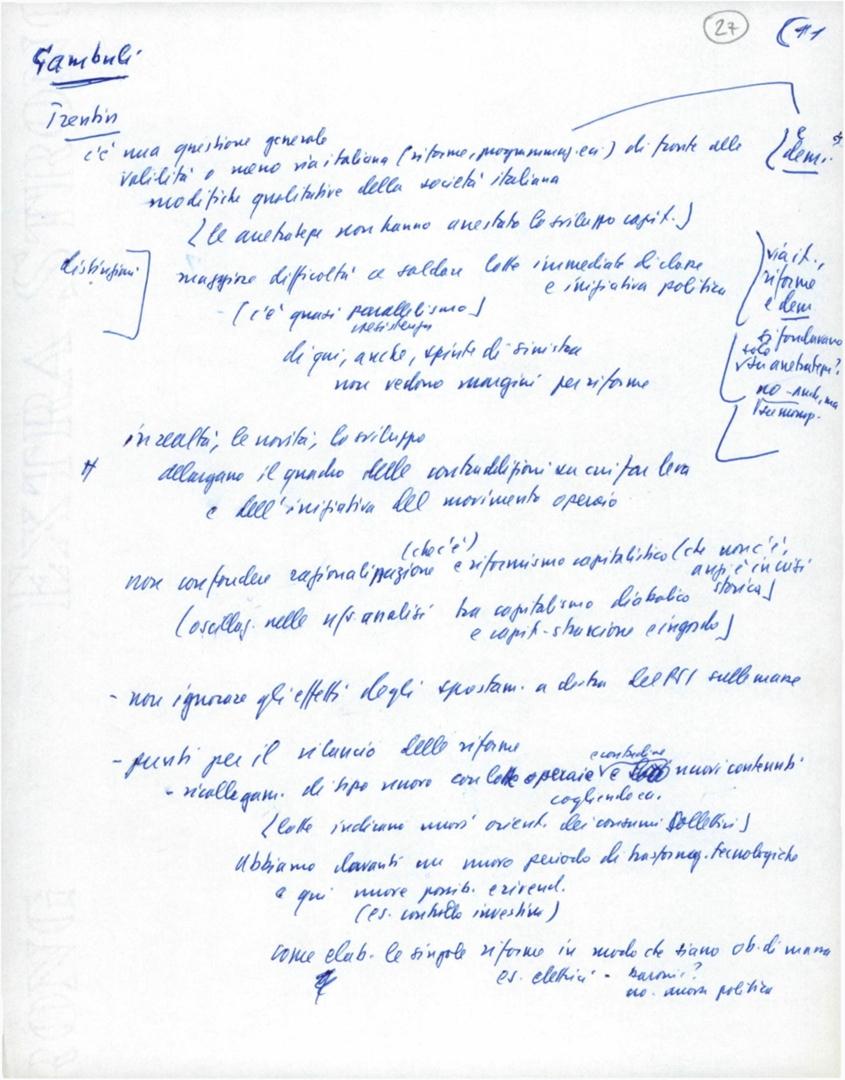 27
Gambuli
Trentin
c'è una questione generale
validità o meno via italiana (riforme, programmaz. ecc.) di fronte alle
e dem.
modifiche qualitative della società italiana
(le arretratezze non hanno arrestato lo sviluppo capit.)
distinzioni
maggiore difficoltà a saldare lotte immediate di classe
e iniziativa politica
via it.,
riforme
e dem
(c'è quasi parallelismo)
di qui, anche, spinte di sinistra
non vedono margini per riforme
si fondavano
solo
su arretratezze?
no - anche, ma
su monop.
in realtà, le novità, lo sviluppo
allargano il quadro delle contraddizioni su cui far leva
e dell'iniziativa del movimento operaio
non confondere razionalizzazione (che c'è) e riformismo capitalistico (che non c'è,
anzi è in crisi
storica)
(oscillaz. nelle ns. analisi tra capitalismo diabolico
e capit. straccione e ingordo)
- non ignorare gli effetti degli spostam. a destra del PSI sulle masse
- punti per il rilancio delle riforme
- ricollegam. di tipo nuovo con lotte operaie e contadine e nuovi contenuti
cogliendo
(lotte indicano nuovi orient. dei consumi collettivi)
Abbiamo davanti un nuovo periodo di trasformaz. tecnologiche
e qui nuove possib. e rivend.
(es. controllo investim.)
come elab. le singole riforme in modo che siano ob. di massa
es. elettrici - baroni?
no. nuova politica